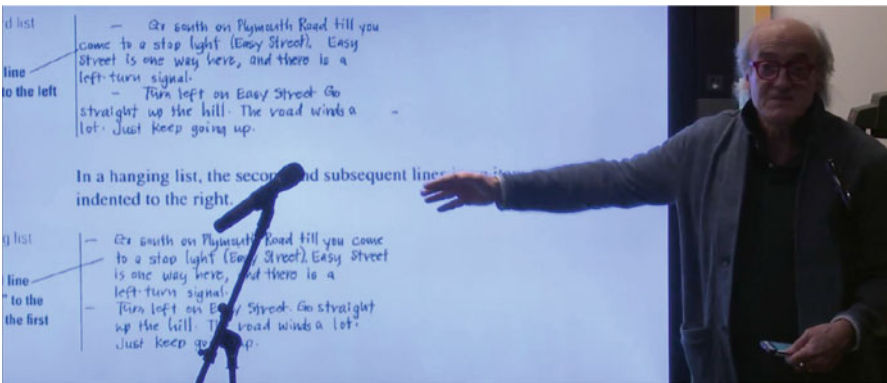 d list
— Go south on Plymouth Road till you
come to a stop light (Easy Street). Easy
Street is one way here, and there is a
left-turn signal.
— Turn left on Easy Street Go
straight up the hill. The road winds a
lot. Just keep going up.
line
to the left
In a hanging list, the second and subsequent lines
indented to the right.
g list
— Go south on Plymouth Road till you come
to a stop light (Easy Street). Easy Street
is one way here, and there is a
left-turn signal.
— Turn left on Easy Street. Go straight
up the hill. The road winds a lot.
Just keep going up.
line
" to the
the first